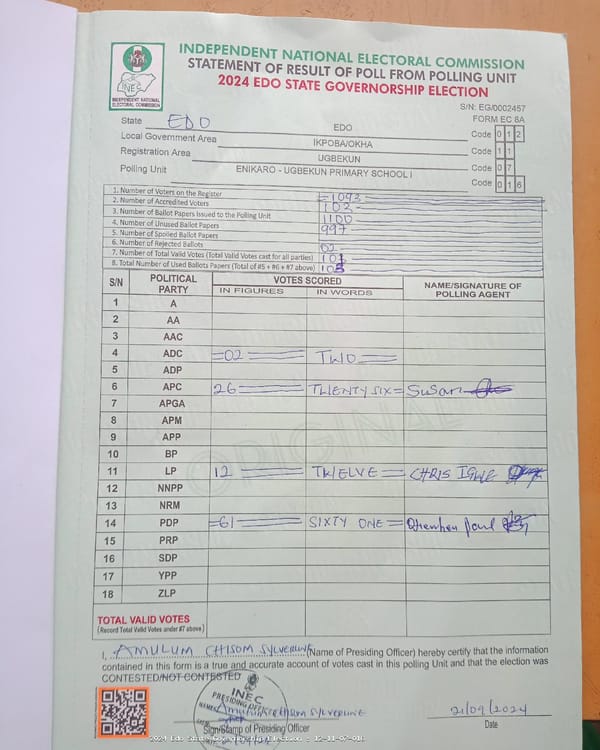 INDEPENDENT NATIONAL ELECTORAL COMMISSION
STATEMENT OF RESULT OF POLL FROM POLLING UNIT
2024 EDO STATE GOVERNORSHIP ELECTION
INEC
INDEPENDENT NATIONAL ELECTORAL COMMISSION
S/N: EG/0002457
FORM EC 8A
State EDO EDO Code 0 1 2
Local Government Area IKPOBA/OKHA Code 1 1
Registration Area UGBEKUN Code 0 7
Polling Unit ENIKARO - UGBEKUN PRIMARY SCHOOL I Code 0 1 6
1. Number of Voters on the Register =1093
2. Number of Accredited Voters 102
3. Number of Ballot Papers Issued to the Polling Unit 1100
4. Number of Unused Ballot Papers 997
5. Number of Spoiled Ballot Papers
6. Number of Rejected Ballots 02
7. Number of Total Valid Votes (Total Valid Votes cast for all parties) 101
8. Total Number of Used Ballots Papers (Total of #5 + #6 + #7 above)
S/N POLITICAL PARTY VOTES SCORED NAME/SIGNATURE OF POLLING AGENT
IN FIGURES IN WORDS
1 A
2 AA
3 AAC
4 ADC =02 TWO
5 ADP
6 APC 26 TWENTY SIX= Susan
7 APGA
8 APM
9 APP
10 BP
11 LP 12 TWELVE CHRIS IGWE
12 NNPP
13 NRM
14 PDP =61 SIXTY ONE = Paul
15 PRP
16 SDP
17 YPP
18 ZLP
ORIGINAL
TOTAL VALID VOTES
(Record Total Valid Votes under #7 above)
I, AMULUM CHISOM SYLVERLINE (Name of Presiding Officer) hereby certify that the information
contained in this form is a true and accurate account of votes cast in this polling Unit and that the election was
CONTESTED/NOT CONTESTED
INEC
PRESIDING OFFICER
Amulum Chisom SYLVERLINE
Sign/Stamp of Presiding Officer
21/09/2024
Date
2024 Edo State Governorship Election - 12-11-07-016